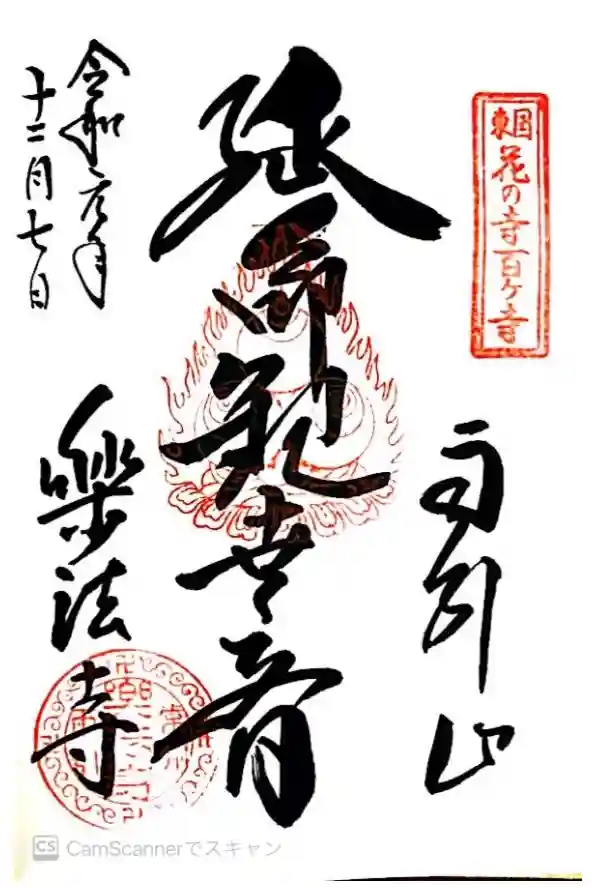 東国
花の寺百ヶ寺
雨引山
延命観世音
令和元年
十二月七日
樂法寺
CS CamScannerでスキャン